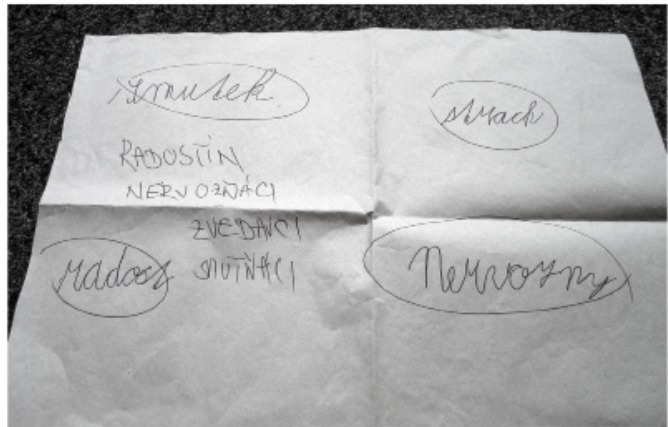 smutek
strach
RADOSTÍN
NERVOZŇÁCI
ZVĚDAVCI
SMUTŇÁCI
radost
Nervozny